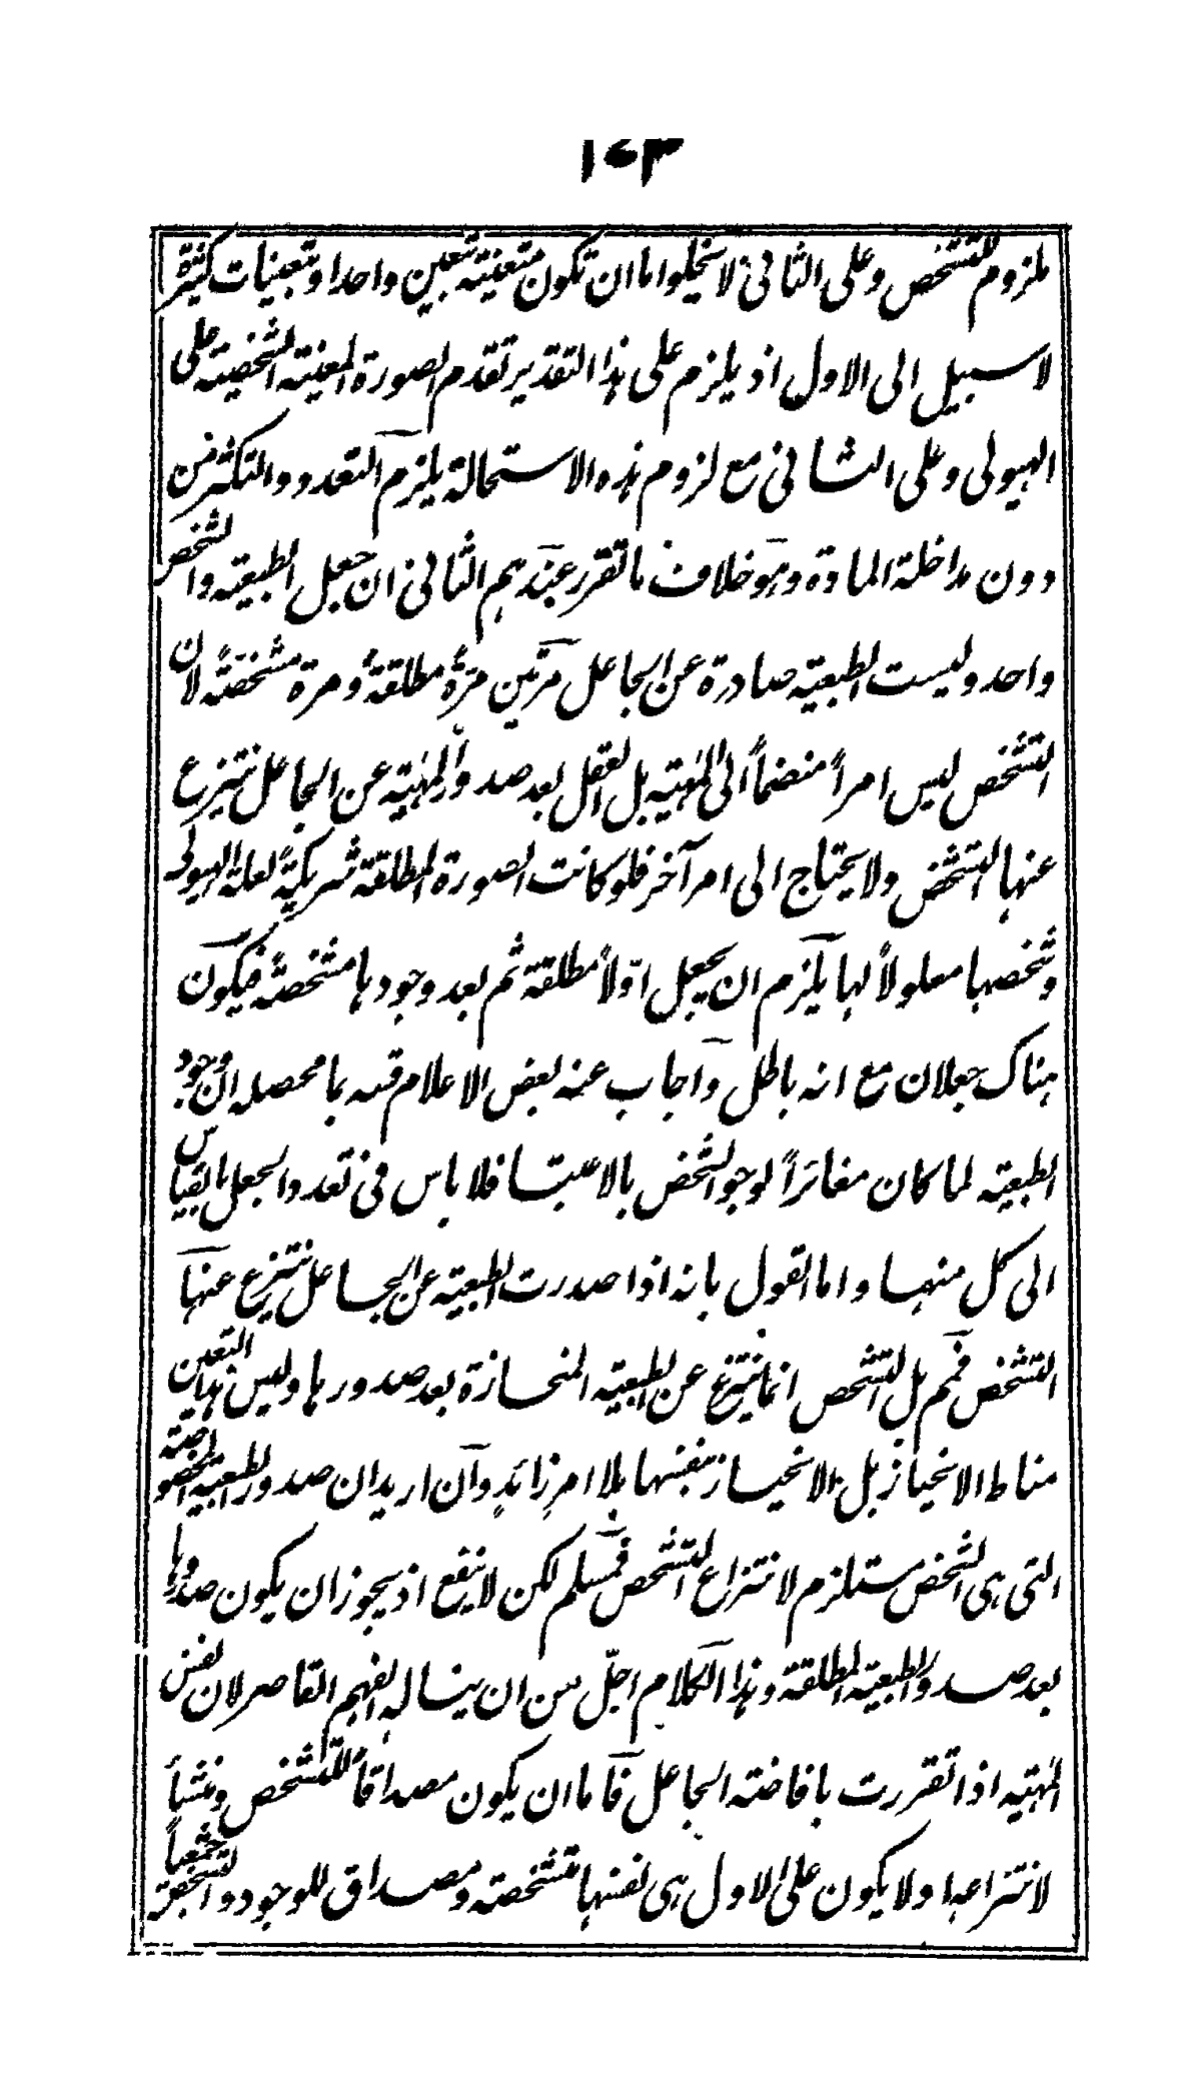 ١٧٣
ملزوم للتشخص وعلى الثاني لا يخلوا ما ان تكون متعينة بتعين واحد او بتعينات كثيرة
لا سبيل الى الاول اذ يلزم على هذا التقدير تقدم الصورة المعينة الشخصية على
الهيولى وعلى الثاني مع لزوم هذه الاستحالة يلزم التعدد والتكثر من
دون مداخلة المادة وهو خلاف ما تقرر عندهم الثاني ان جعل الطبيعة والشخص
واحد وليست الطبيعة صادرة عن الجاعل مرتين مرةً مطلقةً ومرة مشخصةً لان
التشخص ليس امراً منضماً الى المهية بل العقل بعد صدور المهية عن الجاعل ينتزع
عنها التشخص ولا يحتاج الى امر آخر فلو كانت الصورة المطلقة شريكةً لعلة الهيولى
وشخصها معلولاً لها يلزم ان يجعل اوّلاً مطلقة ثم بعد وجودها مشخصةً فيكون
هناك جعلان مع انه باطل وآجاب عنه بعض الاعلام قسه بما محصله ان وجود
الطبيعة لما كان مغائراً لوجود الشخص بالاعتبار فلا باس في تعدد الجعل بالقياس
الى كل منهما واما القول بانه اذا صدرت الطبيعة عن الجاعل ينتزع عنها
التشخص فممّ بل التشخص انما ينتزع عن الطبيعة المنحازة بعد صدورها وليس هذا التعين
مناط الانحياز بل الانحياز بنفسها بلا امرٍ زائدٍ وآن اريد ان صدور الطبيعة المخصوصة
التي هي الشخص مستلزم لانتزاع التشخص فمسلم لكن لا ينفع اذ يجوز ان يكون صدورها
بعد صدور الطبيعة المطلقة وهذا الكلام اجلّ من ان يناله الفهم القاصر لان نفس
المهية اذا تقررت بافاضته الجاعل فآما ان يكون مصداقاً للتشخص ومنشأً
لانتزاعها ولا يكون على الاول هي نفسها متشخصة ومصداق للوجود والتشخص جميعاً